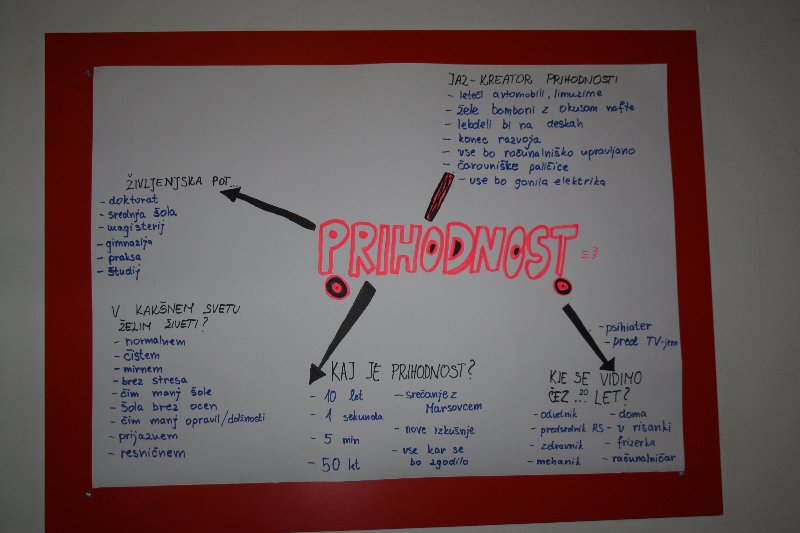 JAZ - KREATOR PRIHODNOSTI
- leteči avtomobili, limuzine
- žele bomboni z okusom nafte
- lebdeli bi na deskah
- konec razvoja
- vse bo računalniško upravljano
- čarovniške paličice
- vse bo gonila elektrika
ŽIVLJENJSKA POT...
- doktorat
- srednja šola
- magisterij
- gimnazija
- praksa
- študij
PRIHODNOST
V KAKŠNEM SVETU
ŽELIM ŽIVETI?
- normalnem
- čistem
- mirnem
- brez stresa
- čim manj šole
- šola brez ocen
- čim manj opravil/dolžnosti
- prijaznem
- resničnem
KAJ JE PRIHODNOST?
- 10 let
- 1 sekunda
- 5 min
- 50 let
- srečanje z
Marsovcem
- nove izkušnje
- vse kar se
bo zgodilo
- psihiater
- pred TV-jem
KJE SE VIDIMO
ČEZ ...20 LET?
- odvetnik
- predsednik RS
- zdravnik
- mehanik
- doma
- v risanki
- frizerka
- računalničar